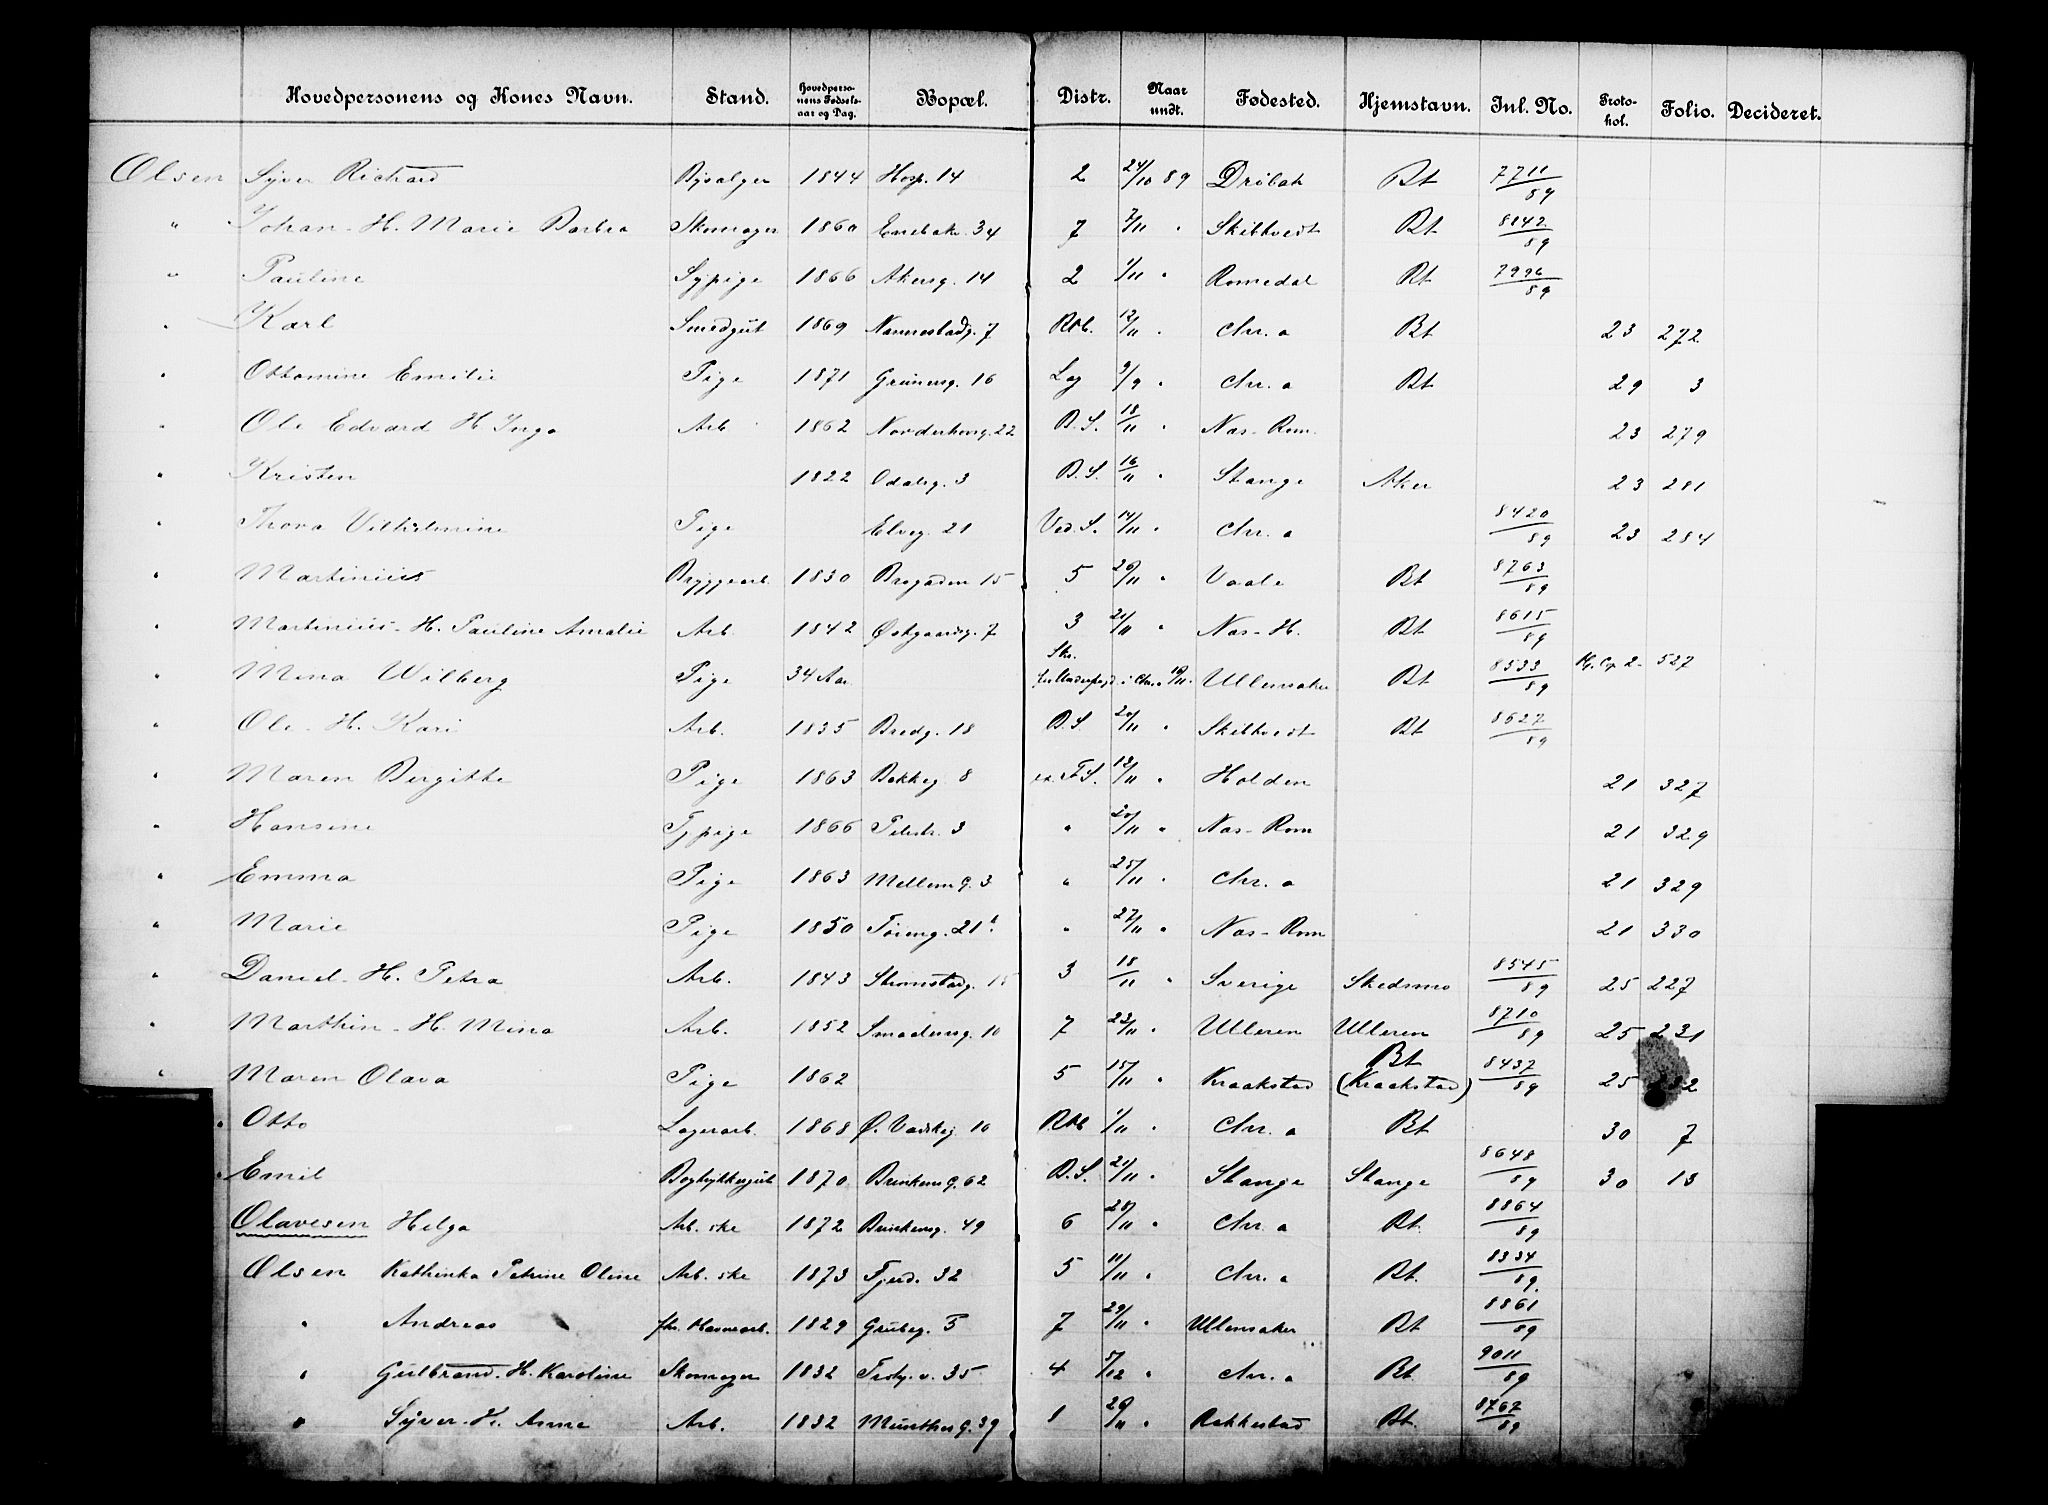 Hovedpersonens og Kones Navn. Stand. Hovedpersonens Fødselsaar og Dag. Bopæl. Distr. Naar undt. Fødested. Hjemstavn. Inl. No. Protokol. Folio. Decideret.
Olsen Syver Richard 1844 Hosp. 14 2 24/10 89 Drøbak Bt 7711/89
" Johan - H. Marie Barbra Skomager 1860 Enebakv. 34 7 7/11 " Skibtvedt Bt 8142/89
" Pauline Sypige 1866 Akersg. 14 2 1/11 " Romedal Bt 7996/89
" Karl Smedgut 1869 Nannestadg. 7 Rtb. 12/11 " Chr. a Bt 23 272
" Ottomine Emilie Pige 1871 Grünersg. 16 Lag 9/9 " Chr. a Bt 29 3
" Ole Edvard H Inga Arb 1862 Norderhovsg. 22 B.S. 18/11 " Næs - Rom. 23 279
" Kristen 1822 Odalsg. 3 B.S. 16/11 " Stange Aker 23 281
" Thora Vilhelmine Pige Elveg. 21 Ved. S. 14/11 " Chr. a 8420/89 23 284
" Martinius Bryggearb. 1830 Brogaden 15 5 26/11 " Vaale Bt 8763/89
" Martinius - H. Pauline Amalie Arb. 1842 Østgaardsg. 7 3 21/11 " Næs - H. Bt 8615/89
" Mina Wilberg Pige 34 Aar Skr. i Chr.a 16/11 " Ullensaker Bt 8533/89 2 - 527
" Ole - H. Kari Arb. 1835 Bredg. 18 B.S 20/11 " Skibtvedt Bt 8627/89
" Maren Birgitte Pige 1863 Bakkeg. 8 12/11 " Holden 21 327
" Hansine Sypige 1866 Pilestr. 3 " 20/11 " Næs - Rom 21 329
" Emma Pige 1863 Mellem G. 3 " 25/11 " Chr. a 21 329
" Marie Pige 1850 Tøieng. 21 " 27/11 " Næs - Rom 21 330
" Daniel - H. Petra Arb. 1843 Strømstadg. 15 3 18/11 " Sverige Skedsmo 8545/89 25 227
" Marthin - H. Mina Arb. 1852 Smaalensg. 10 7 23/11 " Ulleren Ulleren 8710/89 25 231
" Maren Olava Pige 1862 5 15/11 " Kraakstad Bt (Kraakstad) 8437/89 25 232
" Otto Lagerarb. 1868 Ø. Vaskeg. 10 Rtb 1/11 " Chr. a Bt 30 7
" Emil Bogtrykkergut 1870 Brinkens G. 62 B.S. 21/11 " Stange Stange 8648/89 30 13
Olavesen Helga Arb. ske 1872 Brinkensg. 49 6 28/11 " Chr. a Bt. 8864/89
Olsen Kathinka Petrine Oline Arb. ske 1873 Fjerd. 32 5 11/11 " Chr. a Bt. 8334/89
" Andreas fhv. Havnearb. 1829 Grubeg. 5 7 29/11 " Ullensaker Bt 8861/89
" Gulbrand. H. Karoline Skomager 1832 35 4 5/12 " Chr. a Bt 9011/89
" Syver - H. Anne Arb. 1832 Munthes G. 39 1 26/11 " Rakkestad Bt. 8767/89